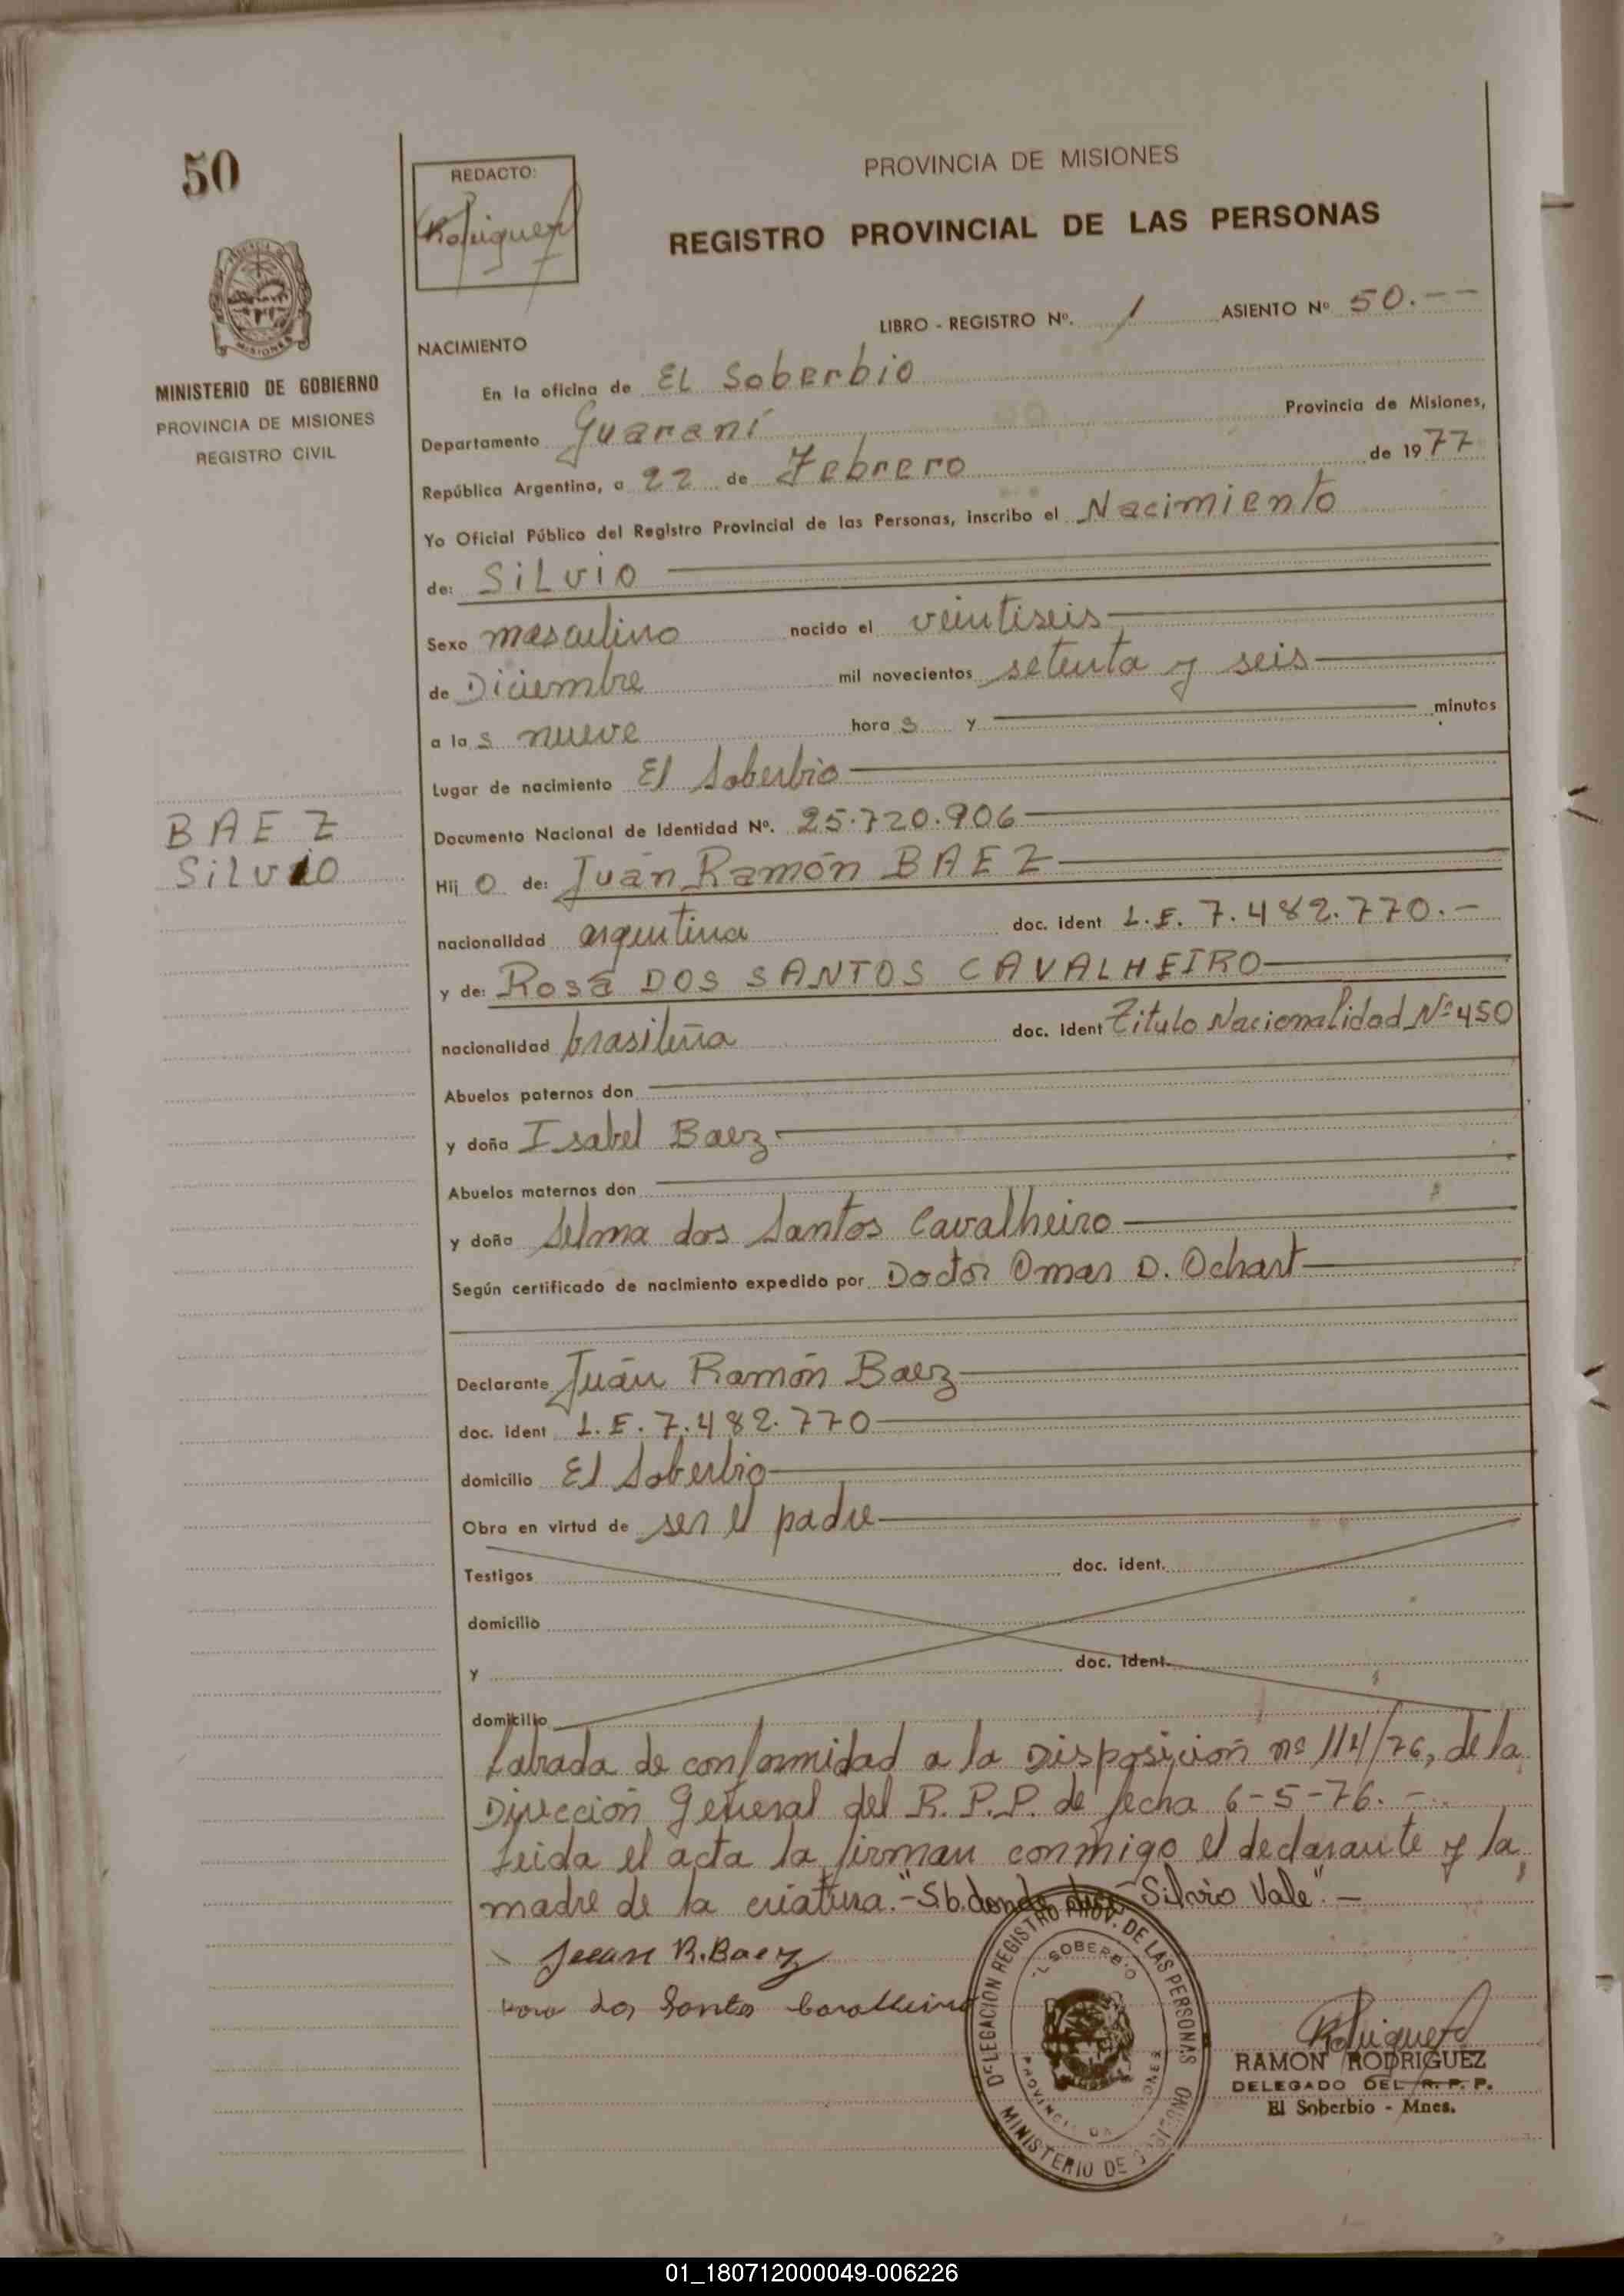 50
REDACTO:
Rodriguez
PROVINCIA DE MISIONES
REGISTRO PROVINCIAL DE LAS PERSONAS
MISIONES
MINISTERIO DE GOBIERNO
PROVINCIA DE MISIONES
REGISTRO CIVIL
LIBRO - REGISTRO Nº. 1 ASIENTO Nº 50.--
NACIMIENTO
En la oficina de EL Soberbio
Departamento Guaraní Provincia de Misiones,
República Argentina, a 22 de Febrero de 1977
Yo Oficial Público del Registro Provincial de las Personas, inscribo el Nacimiento
de: SiLviO
Sexo masculino nacido el veintiseis
de Diciembre mil novecientos setenta y seis
a las nueve horas y minutos
Lugar de nacimiento El Soberbio
Documento Nacional de Identidad Nº. 25.720.906
BAEZ
SiLviO
Hijo de: Juan Ramón BAEZ
nacionalidad argentina doc. ident L.E. 7.482.770.-
y de: Rosa DOS SANTOS CAVALHEIRO
nacionalidad brasileña doc. ident Titulo Nacionalidad Nº 450
Abuelos paternos don
y doña Isabel Baez
Abuelos maternos don
y doña Selma dos Santos Cavalheiro
Según certificado de nacimiento expedido por Doctor Omar D. Ochart
Declarante Juan Ramón Baez
doc. ident L.E. 7.482.770
domicilio El Soberbio
Obra en virtud de ser el padre
Testigos doc. ident.
domicilio
y doc. ident.
domicilio
Labrada de conformidad a la Disposición nº 114/76, de la
Dirección General del R.P.P. de fecha 6-5-76.-
Leida el acta la firman conmigo el declarante y la
madre de la criatura.-Sb. donde dice "Silvio Vale".-
Juan R. Baez
Rosa dos Santos Cavalheiro
DELEGACION REGISTRO PROV. DE LAS PERSONAS
EL SOBERBIO
PROVINCIA DE MISIONES
MINISTERIO DE GOBIERNO
Rodriguez
RAMON RODRIGUEZ
DELEGADO DEL R. P. P.
El Soberbio - Mnes.
01_180712000049-006226